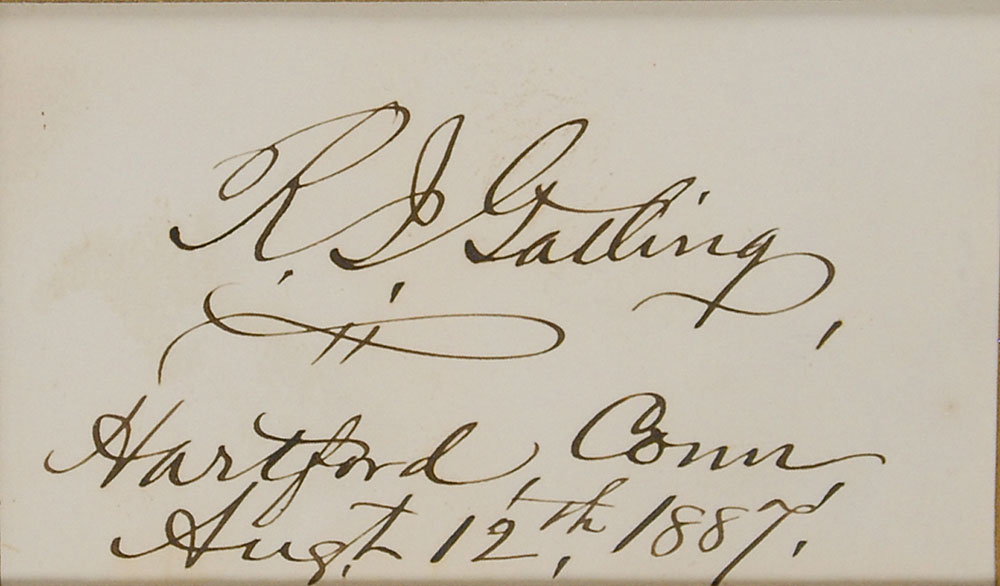 R. J. Gatling,
Hartford, Conn,
Augt. 12th, 1887.